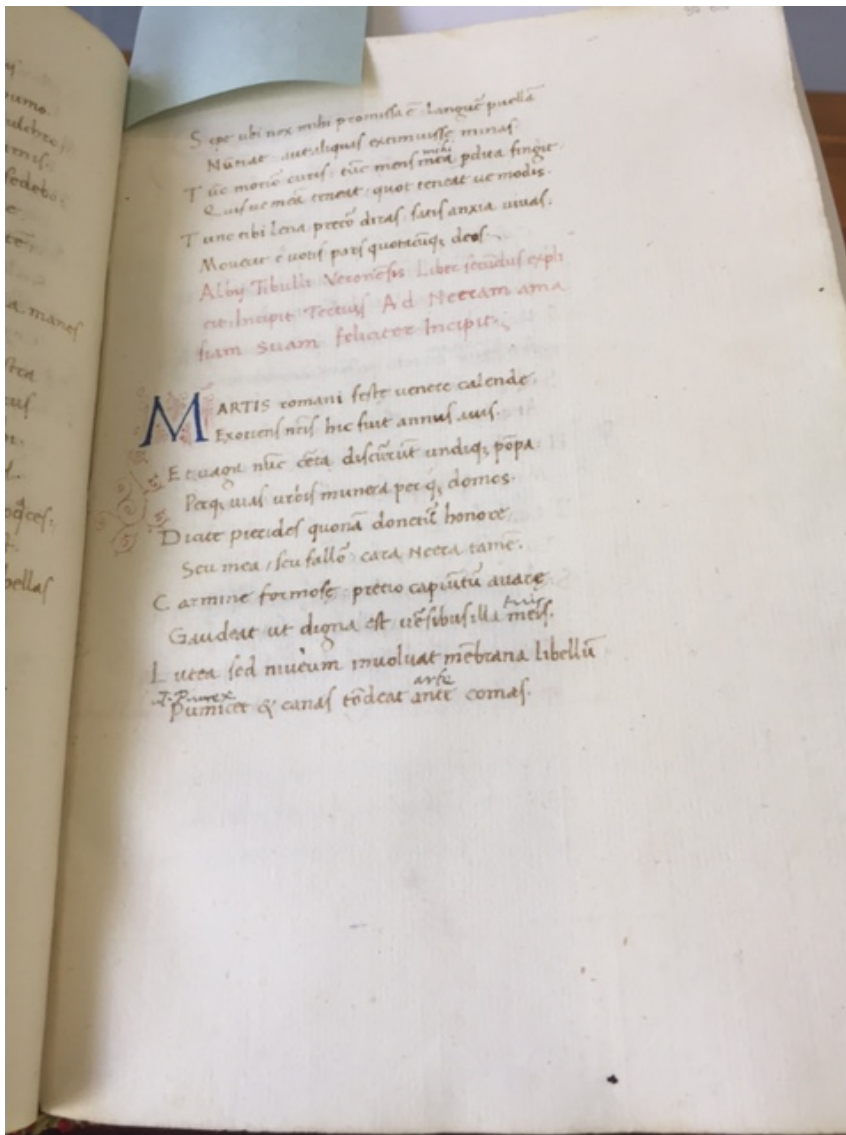 y
pumo.
ulchre,
amis.
sedeto.
e
tē.
a. manes
stra
tus
n.
l.
t.
bellas
S epe ubi nox mihi promissa ē: langue͞ puellā
Nūtiat: aut aliquas extimuisse minas.
T ūc morior curis: tūc mens mea pdita fingit
mihi
Q uis ue meā teneat: quot teneat ue modis.
T unc tibi lena precor̄ diras: satis anxia uiuas.
Moueat e uotis pars quotacūq; deos.
Albij Tibulli Veronēsis Liber secūdus expli
cit. Incipit Tertius Ad Neeram ama
siam suam feliciter Incipit.
MARTIS romani feste uenere calende.
Exoriens nr̄is hic fuit annus auis.
E t uaga nūc cēta discūrūt undiq; pōpa.
Perq; uias urbis munera per q; domos.
D icite pierides quonā donetᷣ honore,
Seu mea, seu fallor̄: cara Neera tamē.
C armine formosę: precio capiūtū auarę
Gaudeat ut digna est uēsibus illa meis.
tuis
L utea sed niueum inuoluat mēbrana libellū
Pumicet & canas tōdeat ante comas.
arte